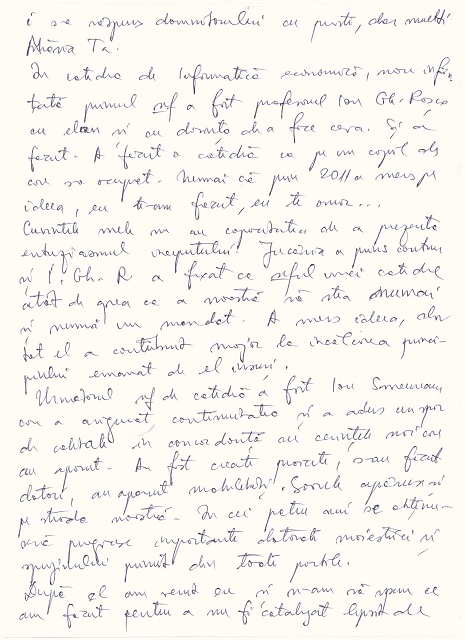 i s-a răspuns domnitorului cu puști, dar mulți
Măria Ta.
În catedra de Informatică economică, nou înfiin-
țată primul șef a fost profesorul Ion Gh. Roșca
cu elan și cu dorința de a face ceva. Și a
făcut. A făcut o catedră ca pe un copil de
care s-a ocupat. Numai că prin 2011 a mers pe
ideea, eu te-am făcut, eu te omor...
Cuvintele mele n-au capacitatea de a prezenta
entuziasmul începutului! Jucăria a prins contur
și I. Gh. R a fixat ca șeful unei catedre
atât de grea ca a noastră să stea numai
și numai un mandat. A mers ideea, dar
tot el a contribuit major la încălcarea princi-
piului emanat de el însuși.
Următorul șef de catedră a fost Ion Smeureanu
care a asigurat continuitatea și a adus un spor
de calitate în concordanță cu cerințele noi care
au apărut. Au fost create proiecte, s-au făcut
datori, au apărut mobilități. Soarele apăruse și
pe strada noastră. În cei patru ani se obținu-
seră progrese importante datorate măiestriei și
sprijinului primit din toate părțile.
După el am venit eu și n-am să spun ce
am făcut pentru a nu fi catalogat lipsit de